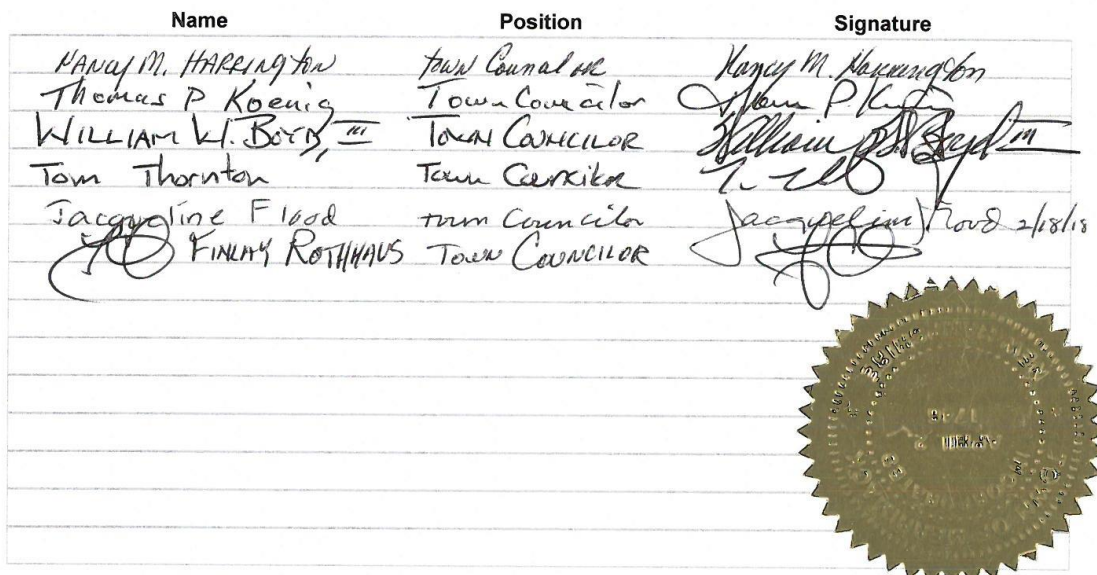 Name Position Signature
NANCY M. HARRINGTON town Councilor Nancy M. Harrington
Thomas P Koenig Town Councilor
WILLIAM W. BOYD, III TOWN COUNCILOR William W. Boyd III
Tom Thornton Town Councilor
Jacqueline Flood town Councilor Jacqueline Flood 2/18/18
FINLAY ROTHHAUS TOWN COUNCILOR